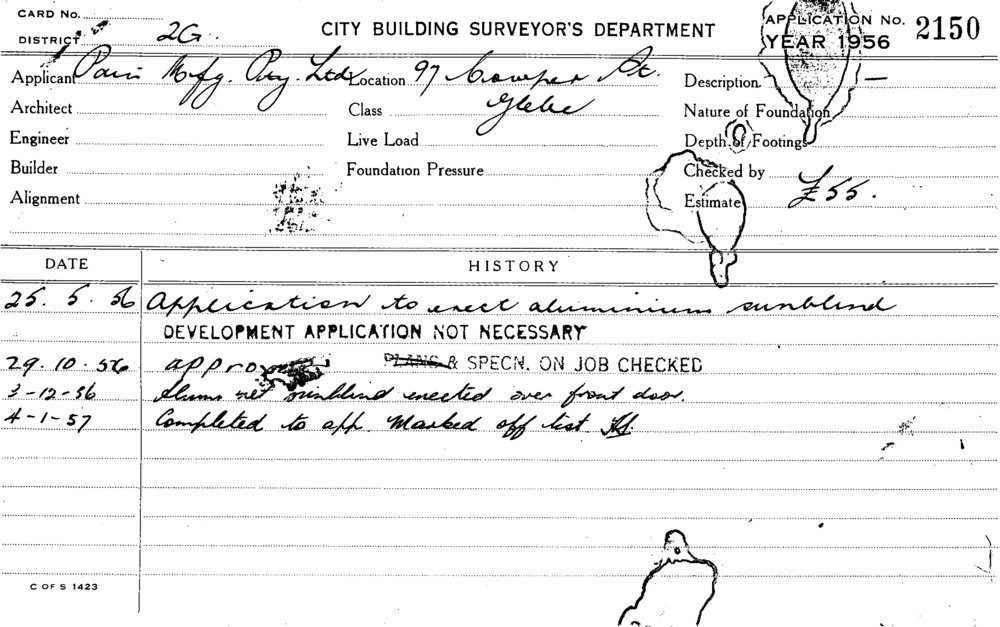 CARD No.
DISTRICT 2G.
CITY BUILDING SURVEYOR'S DEPARTMENT
APPLICATION No. 2150
YEAR 1956
Applicant Mfg. Pty. Ltd. Location 97 Cowper St. Description —
Architect Class Glebe Nature of Foundation
Engineer Live Load Depth of Footings
Builder Foundation Pressure Checked by
Alignment Estimate £55.
DATE HISTORY
25. 5. 56 Application to erect aluminium sunblind
DEVELOPMENT APPLICATION NOT NECESSARY
29. 10. 56 PLANS & SPECN. ON JOB CHECKED
3-12-56 sunblind erected over front door.
4-1-57 Completed to app. Marked off list
C OF S 1423